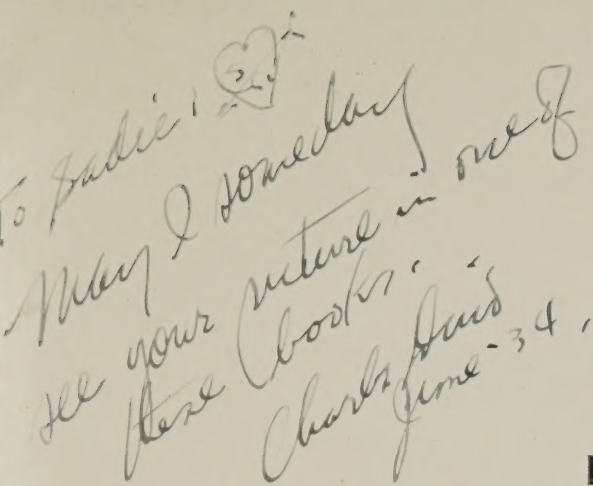 To Sadie!
May I someday
see your picture in one of
these books.
Charles
June - 34.